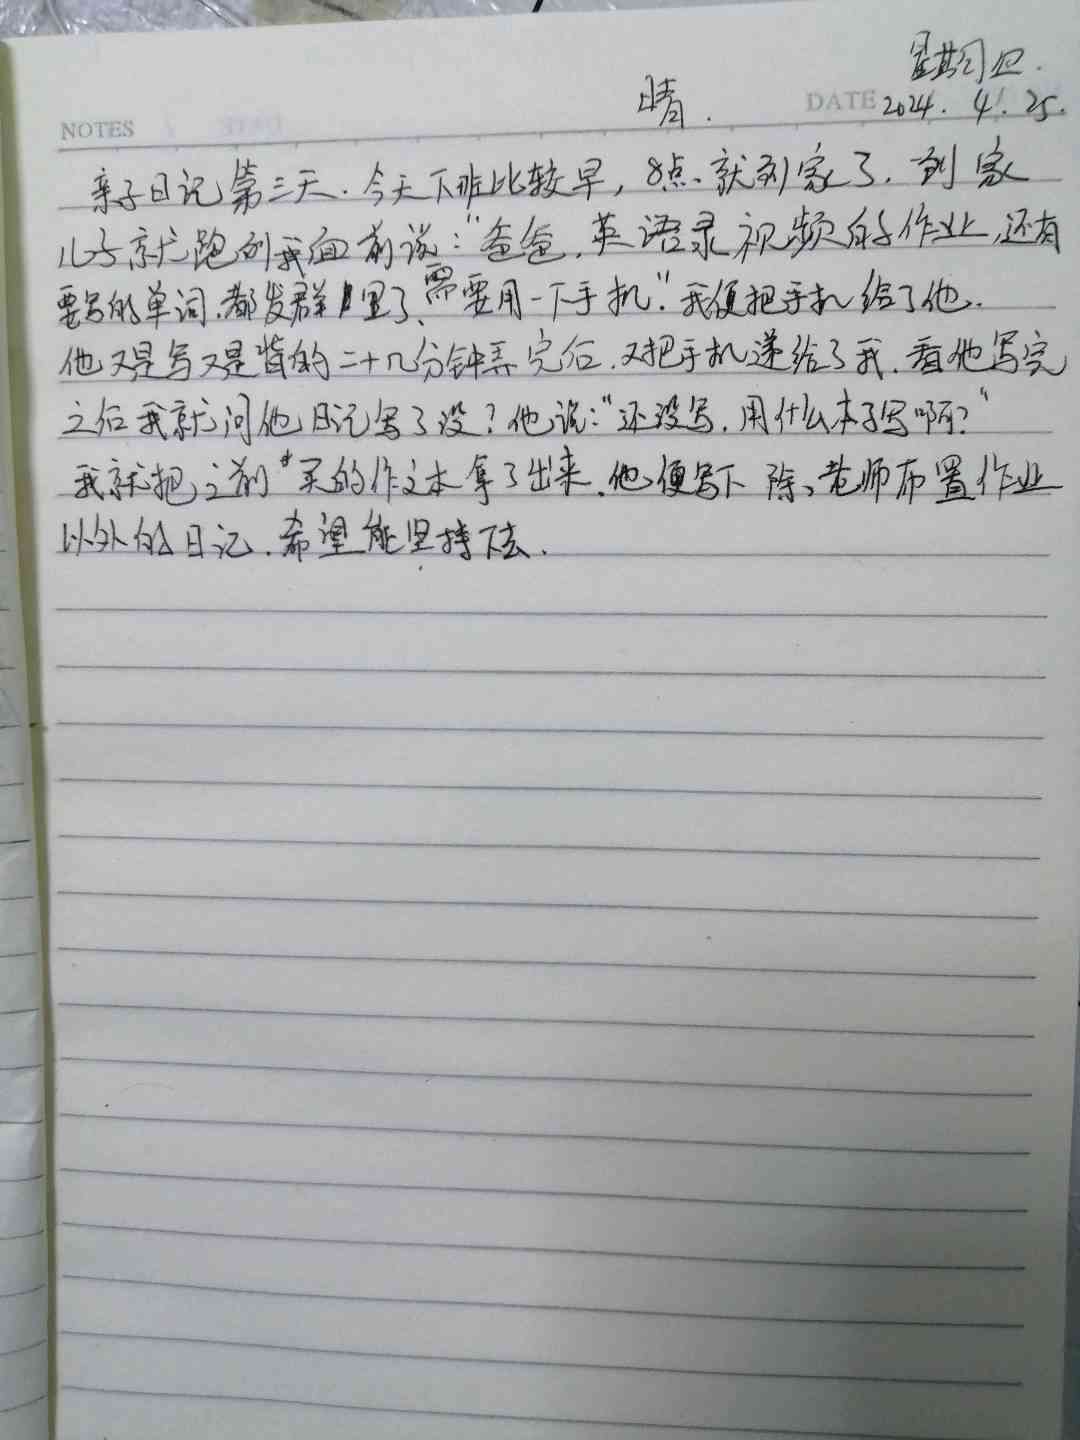 星期四.
晴.
NOTES DATE 2024.4.25.
亲子日记第三天.今天下班比较早,8点就到家了.到家
儿子就跑到我面前说:"爸爸,英语录视频的作业,还有
要写的单词,都发群里了,需要用一下手机."我便把手机给了他.
他又是写又是背的二十几分钟弄完后,又把手机递给了我.看他写完
之后我就问他日记写了没?他说:"还没写,用什么本子写啊?"
我就把之前买的作文本拿了出来,他便写下除老师布置作业
以外的日记.希望能坚持下去.